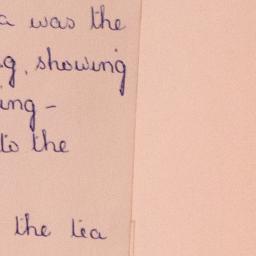 a was the
g, showing
ing -
to the
the tea